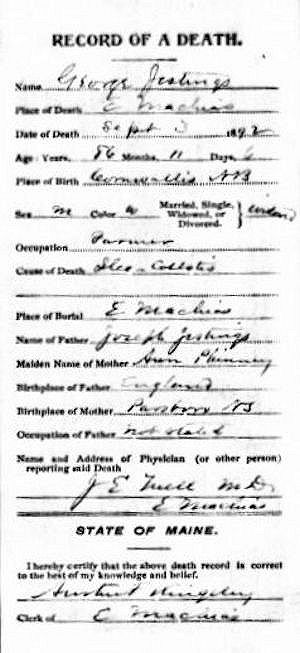 RECORD OF A DEATH.
Name George Jestings
Place of Death E Machias
Date of Death Sept 3 1892
Age: Years, 86 Months, 11 Days, 6
Place of Birth Cornwallis NB
Sex M Color W Married, Single, Widowed, or Divorced. }
Occupation Farmer
Cause of Death Ileo-Colitis
Place of Burial E Machias
Name of Father Joseph Jestings
Maiden Name of Mother Ann Phinney
Birthplace of Father England
Birthplace of Mother Parsboro NB
Occupation of Father not stated
Name and Address of Physician (or other person)
reporting said Death
J E Tuell M D
E Machias
STATE OF MAINE.
I hereby certify that the above death record is correct
to the best of my knowledge and belief.
Kingsley
Clerk of E Machias